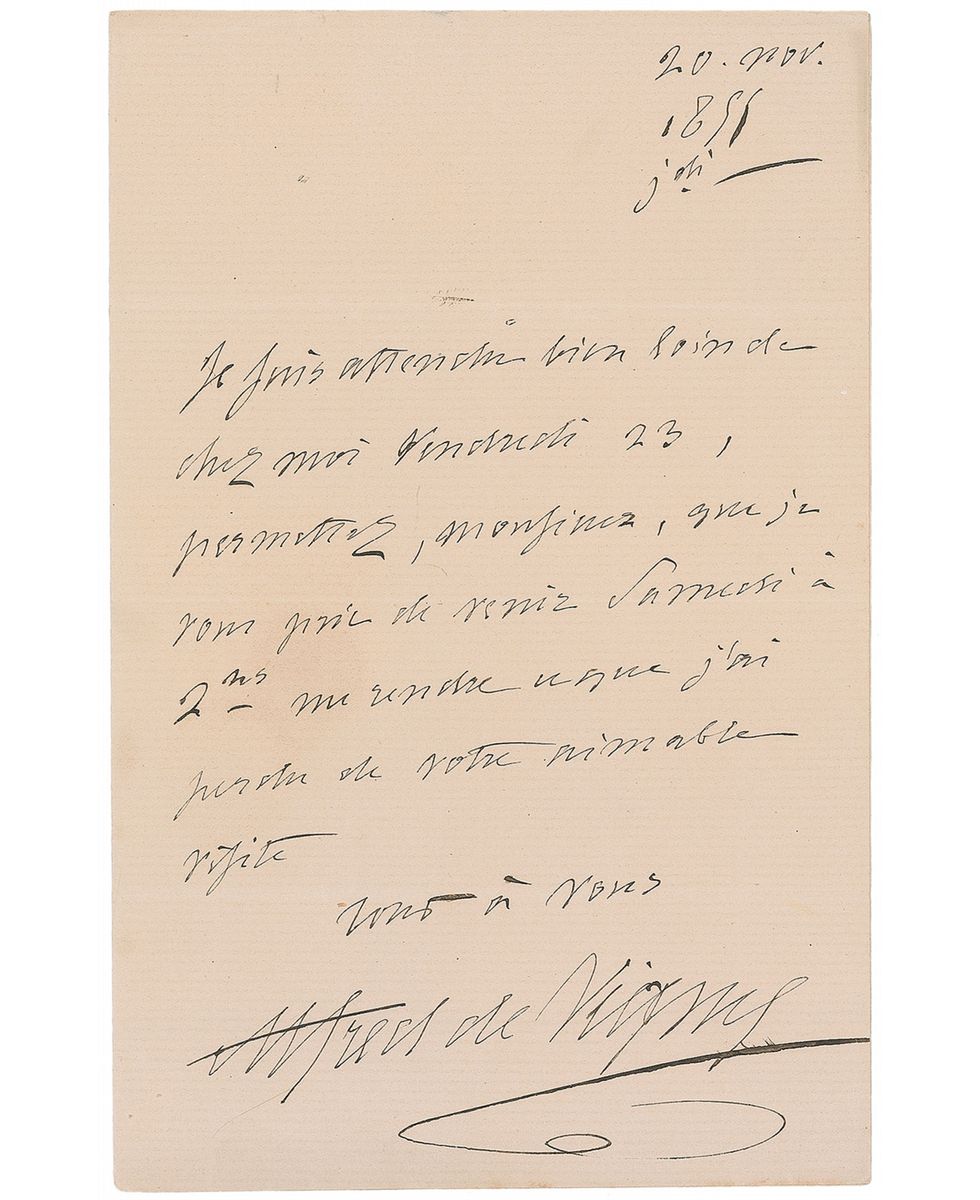 20. nov.
1855
jdi
Je suis attendu bien loin de
chez moi Vendredi 23,
permettez, monsieur, que je
vous prie de venir Samedi à
2 hs me rendre ce que j'ai
perdu de votre aimable
visite
tout à vous
Alfred de Vigny